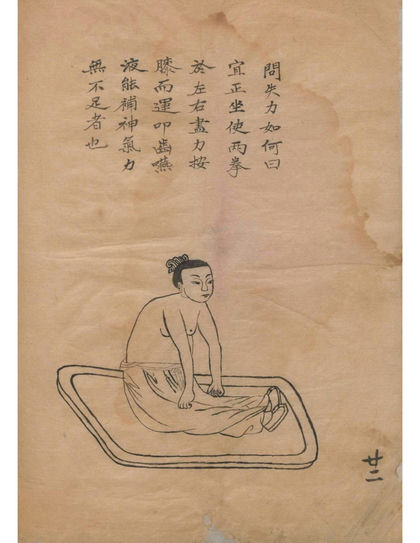 問失力如何曰
宜正坐使兩拳
於左右盡力按
膝而運叩齒嚥
液能補神氣力
無不足者也
廿二